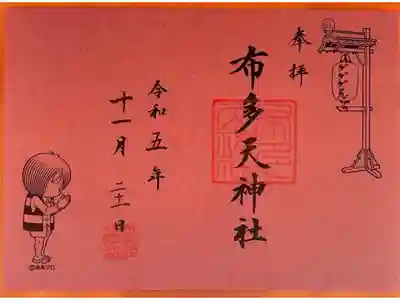 奉拝
ゲゲゲ忌
布多天神社
令和五年
十一月二十一日
©水木プロ